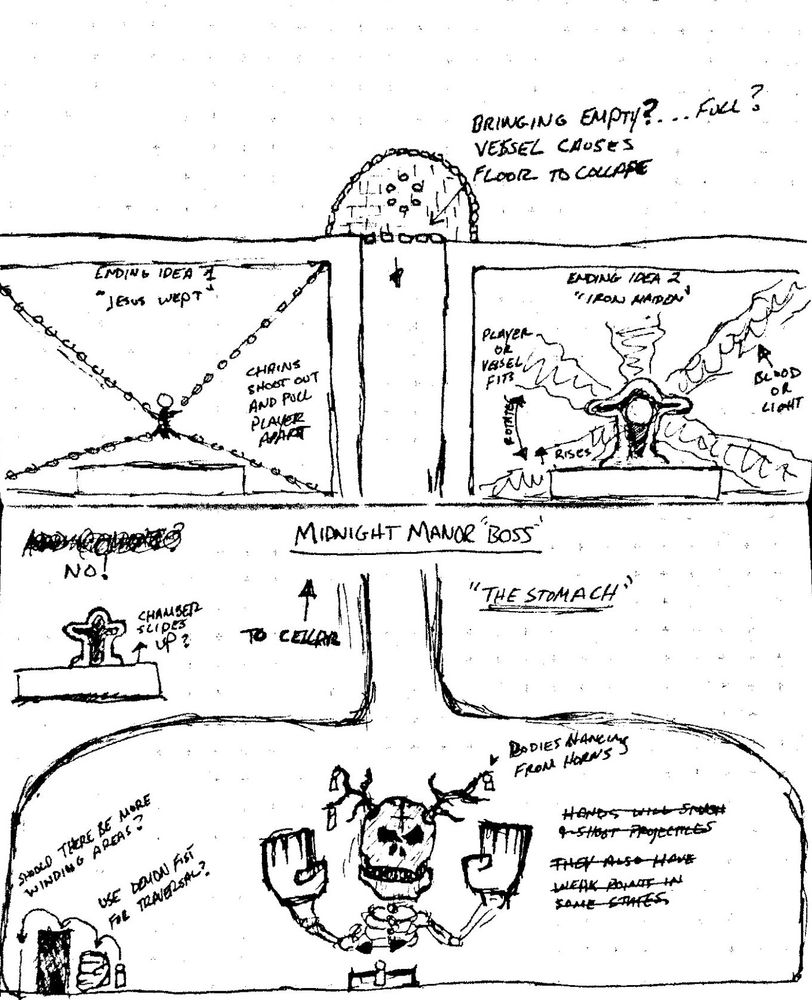 BRINGING EMPTY?...FULL?
VESSEL CAUSES
FLOOR TO COLLAPE
ENDING IDEA 1
"JESUS WEPT"
CHAINS
SHOOT OUT
AND PULL
PLAYER
APART
ENDING IDEA 2
"IRON MAIDEN"
PLAYER
OR
VESSEL
FITS
ROTATES
RISES
BLOOD
OR
LIGHT
NO!
MIDNIGHT MANOR "BOSS"
"THE STOMACH"
TO CELLAR
CHAMBER
SLIDES
UP?
BODIES HANGING
FROM HORNS
SHOULD THERE BE MORE
WINDING AREAS?
USE DEMON FIST
FOR TRAVERSAL?
HANDS WILL SMASH
& SHOOT PROJECTILES
THEY ALSO HAVE
WEAK POINTS IN
SOME STATES